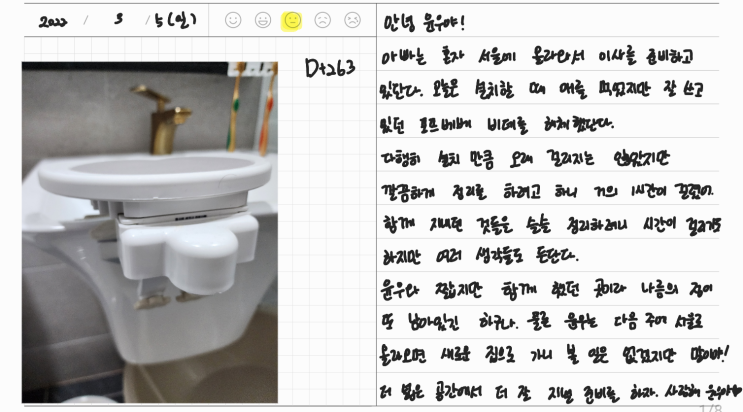 2022 / 3 / 5 (일)
D+263
안녕 윤우야!
아빠는 혼자 서울에 올라와서 이사를 준비하고
있단다. 오늘은 설치할 때 애를 먹었지만 잘 쓰고
있던 포프베베 비데를 해체했단다.
다행히 설치 만큼 오래 걸리지는 않았지만
깔끔하게 정리를 하려고 하니 거의 1시간이 걸렸어.
함께 지내던 것들을 슬슬 정리하려니 시간이 걸리기도
하지만 여러 생각들도 든단다.
윤우와 짧지만 함께 했던 곳이라 나름의 정이
또 남아있긴 하구나. 물론 윤우는 다음 주에 서울로
올라오면 새로운 집으로 가니 볼 일은 없겠지만 말이야!
더 넓은 공간에서 더 잘 지낼 준비를 하자. 사랑해 윤우야♥
1/8